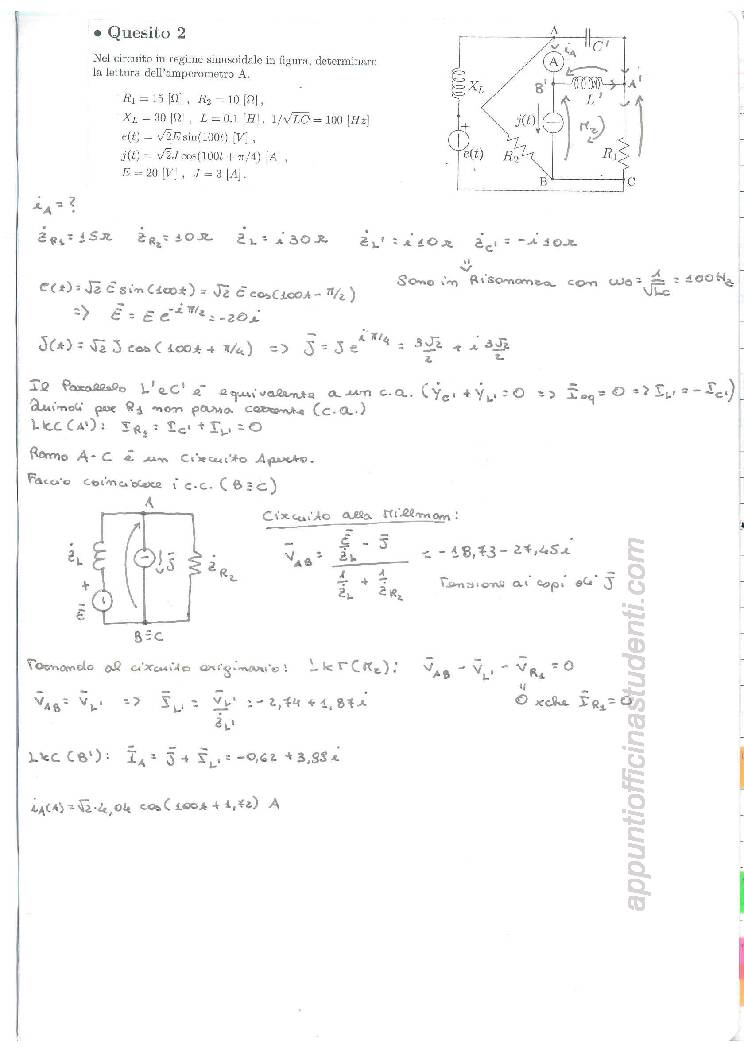 • Quesito 2
Nel circuito in regime sinusoidale in figura, determinare
la lettura dell'amperometro A.
R₁ = 15 [Ω] , R₂ = 10 [Ω] ,
X_L = 30 [Ω] , L = 0.1 [H] , 1/√LC = 100 [Hz]
e(t) = √2E sin(100t) [V] ,
j(t) = √2J cos(100t + π/4) [A] ,
E = 20 [V] , J = 3 [A] .
A
C'
i_A
A
X_L
B'
A'
L'
j(t)
M₂
+
e(t)
R₂
R₁
B
C
i_A = ?
Ż_R1 = 15Ω Ż_R2 = 10Ω Ż_L = i30Ω Ż_L' = i10Ω Ż_C' = -i10Ω
Sono in Risonanza con ω₀ = 1/√LC = 100 Hz
e(t) = √2 E sin(100t) = √2 E cos(100t - π/2)
=> Ē = E e^(-iπ/2) = -20i
J(t) = √2 J cos(100t + π/4) => J̄ = J e^(iπ/4) = 3√2/2 + i 3√2/2
Il Parallelo L' e C' è equivalente a un c.a. (Ẏ_C' + Ẏ_L' = 0 => Ī_eq = 0 => I_L' = -I_C')
Quindi per R1 non passa corrente (c.a.)
LKC(A'): I_R1 = I_C' + I_L' = 0
Ramo A-C è un circuito Aperto.
Faccio coincidere i c.c. (B≡C)
A
Circuito alla Millman:
Ż_L
J̄
Ż_R2
+
Ē
B≡C
V̄_AB = (Ē/Ż_L - J̄)/(1/Ż_L + 1/Ż_R2) = -18,73 - 27,45i
Tensione ai capi di J̄
Tornando al circuito originario: LKT(M₂): V̄_AB - V̄_L' - V̄_R1 = 0
V̄_AB = V̄_L' => Ī_L' = V̄_L'/Ż_L' = -2,74 + 1,87i
0 xche Ī_R1 = 0
LKC(B'): Ī_A = J̄ + Ī_L' = -0,62 + 3,99i
i_A(t) = √2·4,04 cos(100t + 1,72) A
appuntiofficinastudenti.com